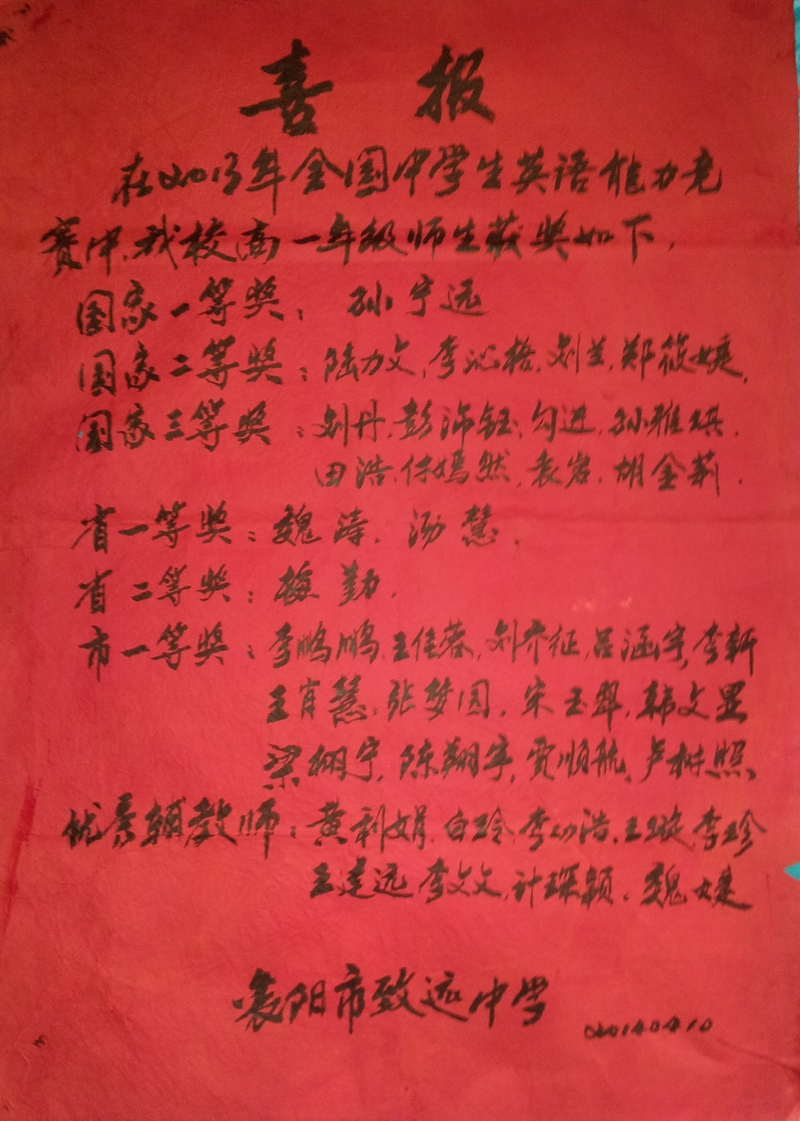 喜报
在2013年全国中学生英语能力竞
赛中,我校高一年级师生获奖如下,
国家一等奖: 孙宁远
国家二等奖:陆力文,李沁格,刘兰,郑筱婕,
国家三等奖:刘丹,彭沛钰,勾进,孙雅琪.
田浩,何嫣然,袁岩,胡金莉.
省一等奖:魏涛.汤慧,
省二等奖:梅勤.
市一等奖:李鹏鹏,王佳蓉,刘齐征,吕涵宇,李轩
王肖慧,张梦园,宋玉翠,韩文昱
梁栩宁,陈翔宇,贾顺航,卢树照
优秀辅教师:黄利娟,白玲,李功浩,王璇,李珍
王建远,李文文,计琛颖,魏婕
襄阳市致远中学 20140410